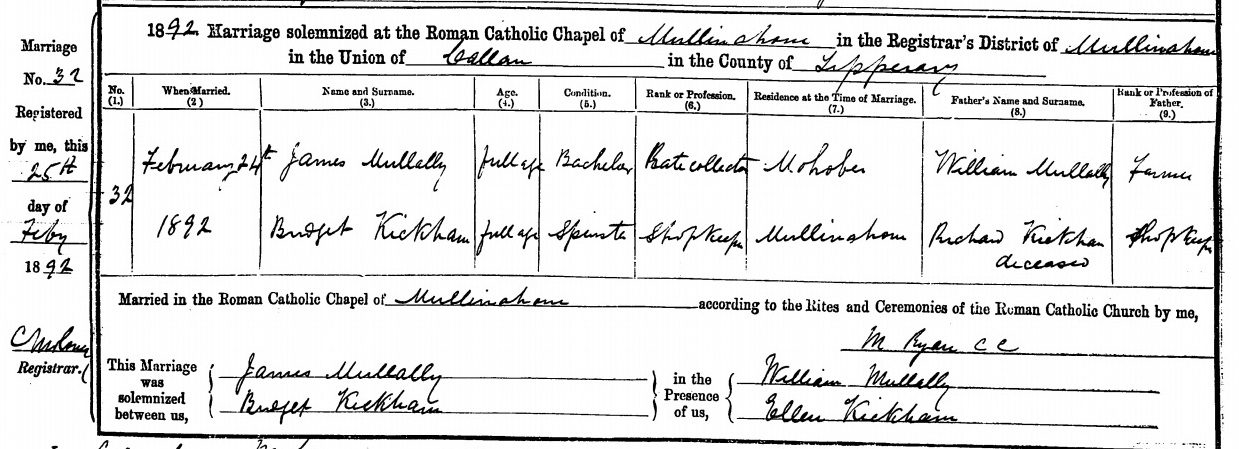 1892 Marriage solemnized at the Roman Catholic Chapel of Mullinahone in the Registrar's District of Mullinahone
in the Union of Callan in the County of Tipperary
Marriage
No. 32
Registered
by me, this
25th
day of
Feby
1892
Registrar.
No. (1.) When Married. (2) Name and Surname. (3.) Age. (4.) Condition. (5.) Rank or Profession. (6.) Residence at the Time of Marriage. (7.) Father's Name and Surname. (8.) Rank or Profession of Father. (9.)
February 24th James Mullally full age Bachelor Rate collector Mohober William Mullally Farmer
32
1892 Bridget Kickham full age Spinster Shopkeeper Mullinahone Richard Kickham Shopkeeper
deceased
Married in the Roman Catholic Chapel of Mullinahone according to the Rites and Ceremonies of the Roman Catholic Church by me,
M Ryan C C
This Marriage was solemnized between us,
James Mullally
Bridget Kickham
in the Presence of us,
William Mullally
Ellen Kickham